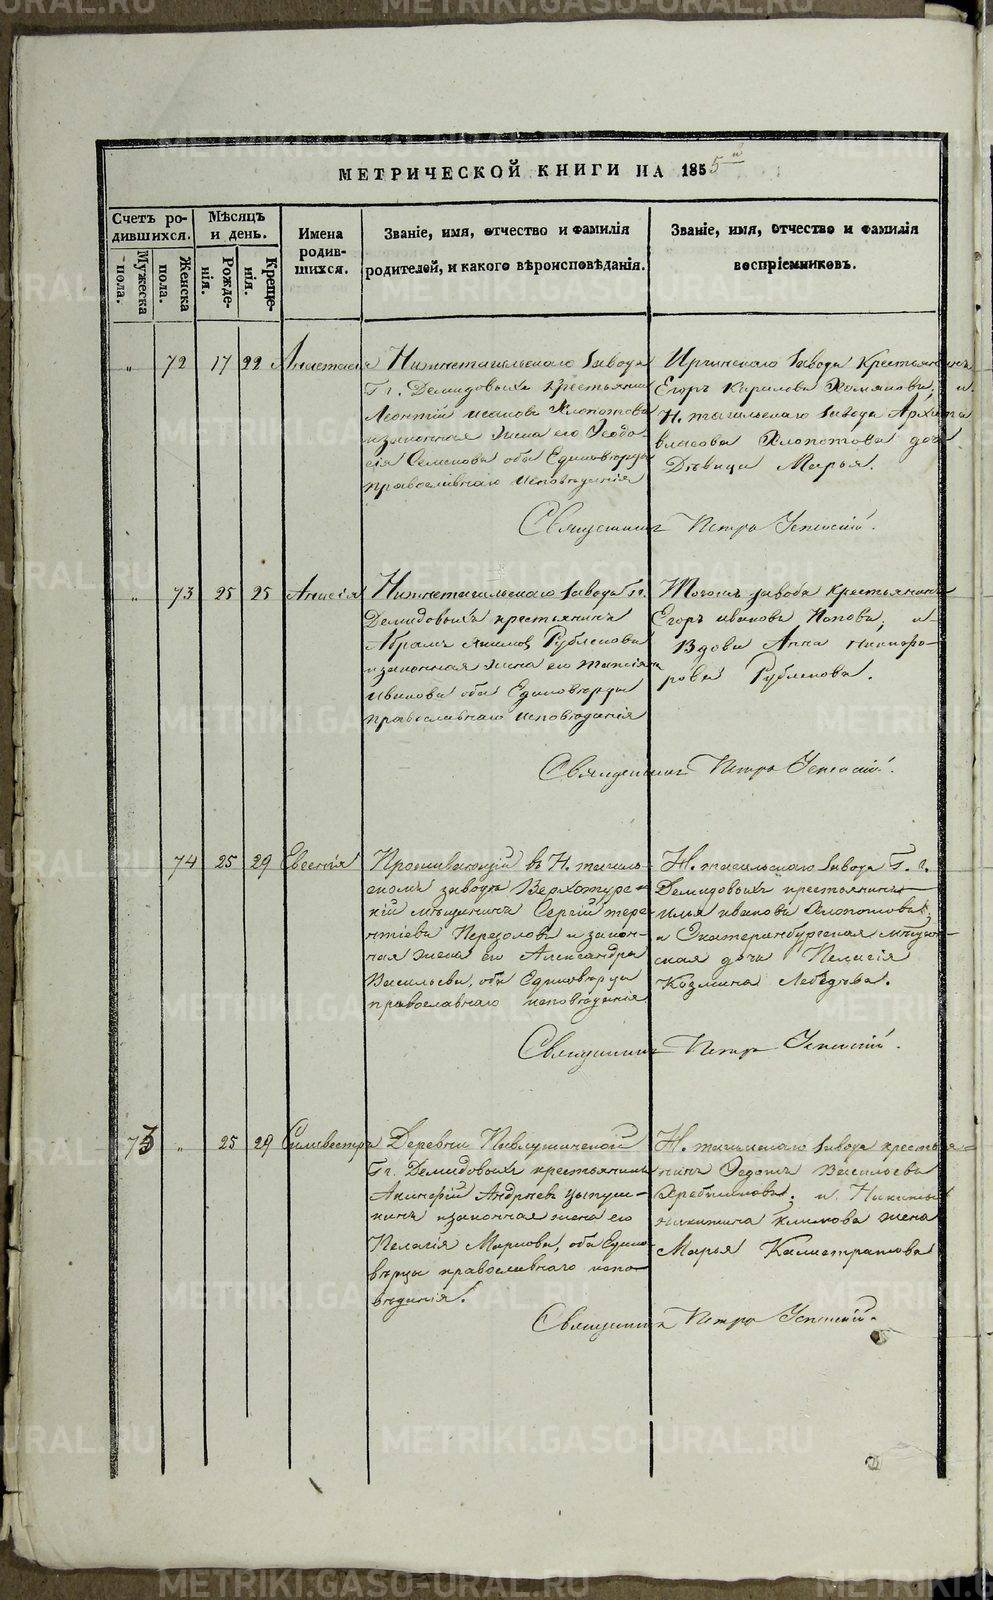 METRIKI.GASO-URAL.RU
МЕТРИЧЕСКОЙ КНИГИ НА 1855й
Счетъ родившихся.
Мужеска пола.
Женска пола.
Мѣсяцъ и день.
Рожденія.
Крещенія.
Имена родившихся.
Званіе, имя, отчество и фамилія родителей, и какого вѣроисповѣданія.
Званіе, имя, отчество и фамилія воспріемниковъ.
„ 72 17 22
Нижнетагильскаго завода
Гг. Демидовыхъ крестьянинъ
Леонтій Исаковъ Хлопотовъ
и законная жена его Ѳеодо
сія Семенова оба Единовѣрцы
православнаго исповѣданія
завода Крестьянинъ
Егоръ Кириловъ Хомяковъ, и
Н. тагильскаго завода Архипа
Власова Хлопотова дочь
Дѣвица Марья.
Священникъ Петръ Успенскій.
„ 73 25 25 Анисія
Нижнетагильскаго завода Гг.
Демидовыхъ крестьянинъ
Абрамъ Рублевъ
и законная жена его Таисія
Иванова оба Единовѣрцы
православнаго исповѣданія
Тогожъ завода крестьянинъ
Егоръ Ивановъ Поповъ, и
Вдова Анна Никифо-
рова
Священникъ Петръ Успенскій.
74 25 29 Евгенія
Проживающій въ Н. тагиль-
скомъ заводѣ Верхотурс-
кій мѣщанинъ Сергій Тере-
нтіевъ и закон-
ная жена его Александра
Васильева, оба Единовѣрцы
православнаго исповѣданія
Н. тагильскаго завода Г. г.
Демидовыхъ крестьянинъ
Илья Ивановъ Хлопотовъ,
и Екатеринбургская мѣщан-
ская дочь Пелагія
Козмина Лебедева.
Священникъ Петръ Успенскій.
73 „ 25 29 Силивестръ
Деревни
Гг. Демидовыхъ крестьянинъ
Акинфій Андреевъ
и законная жена его
Пелагія Маркова, оба Едино-
вѣрцы православнаго испо-
вѣданія.
Н. тагильскаго завода крестья-
нинъ Ѳедотъ Васильевъ
и Никиты
Никитина Климова жена
Марья Калистратова
Священникъ Петръ Успенскій.